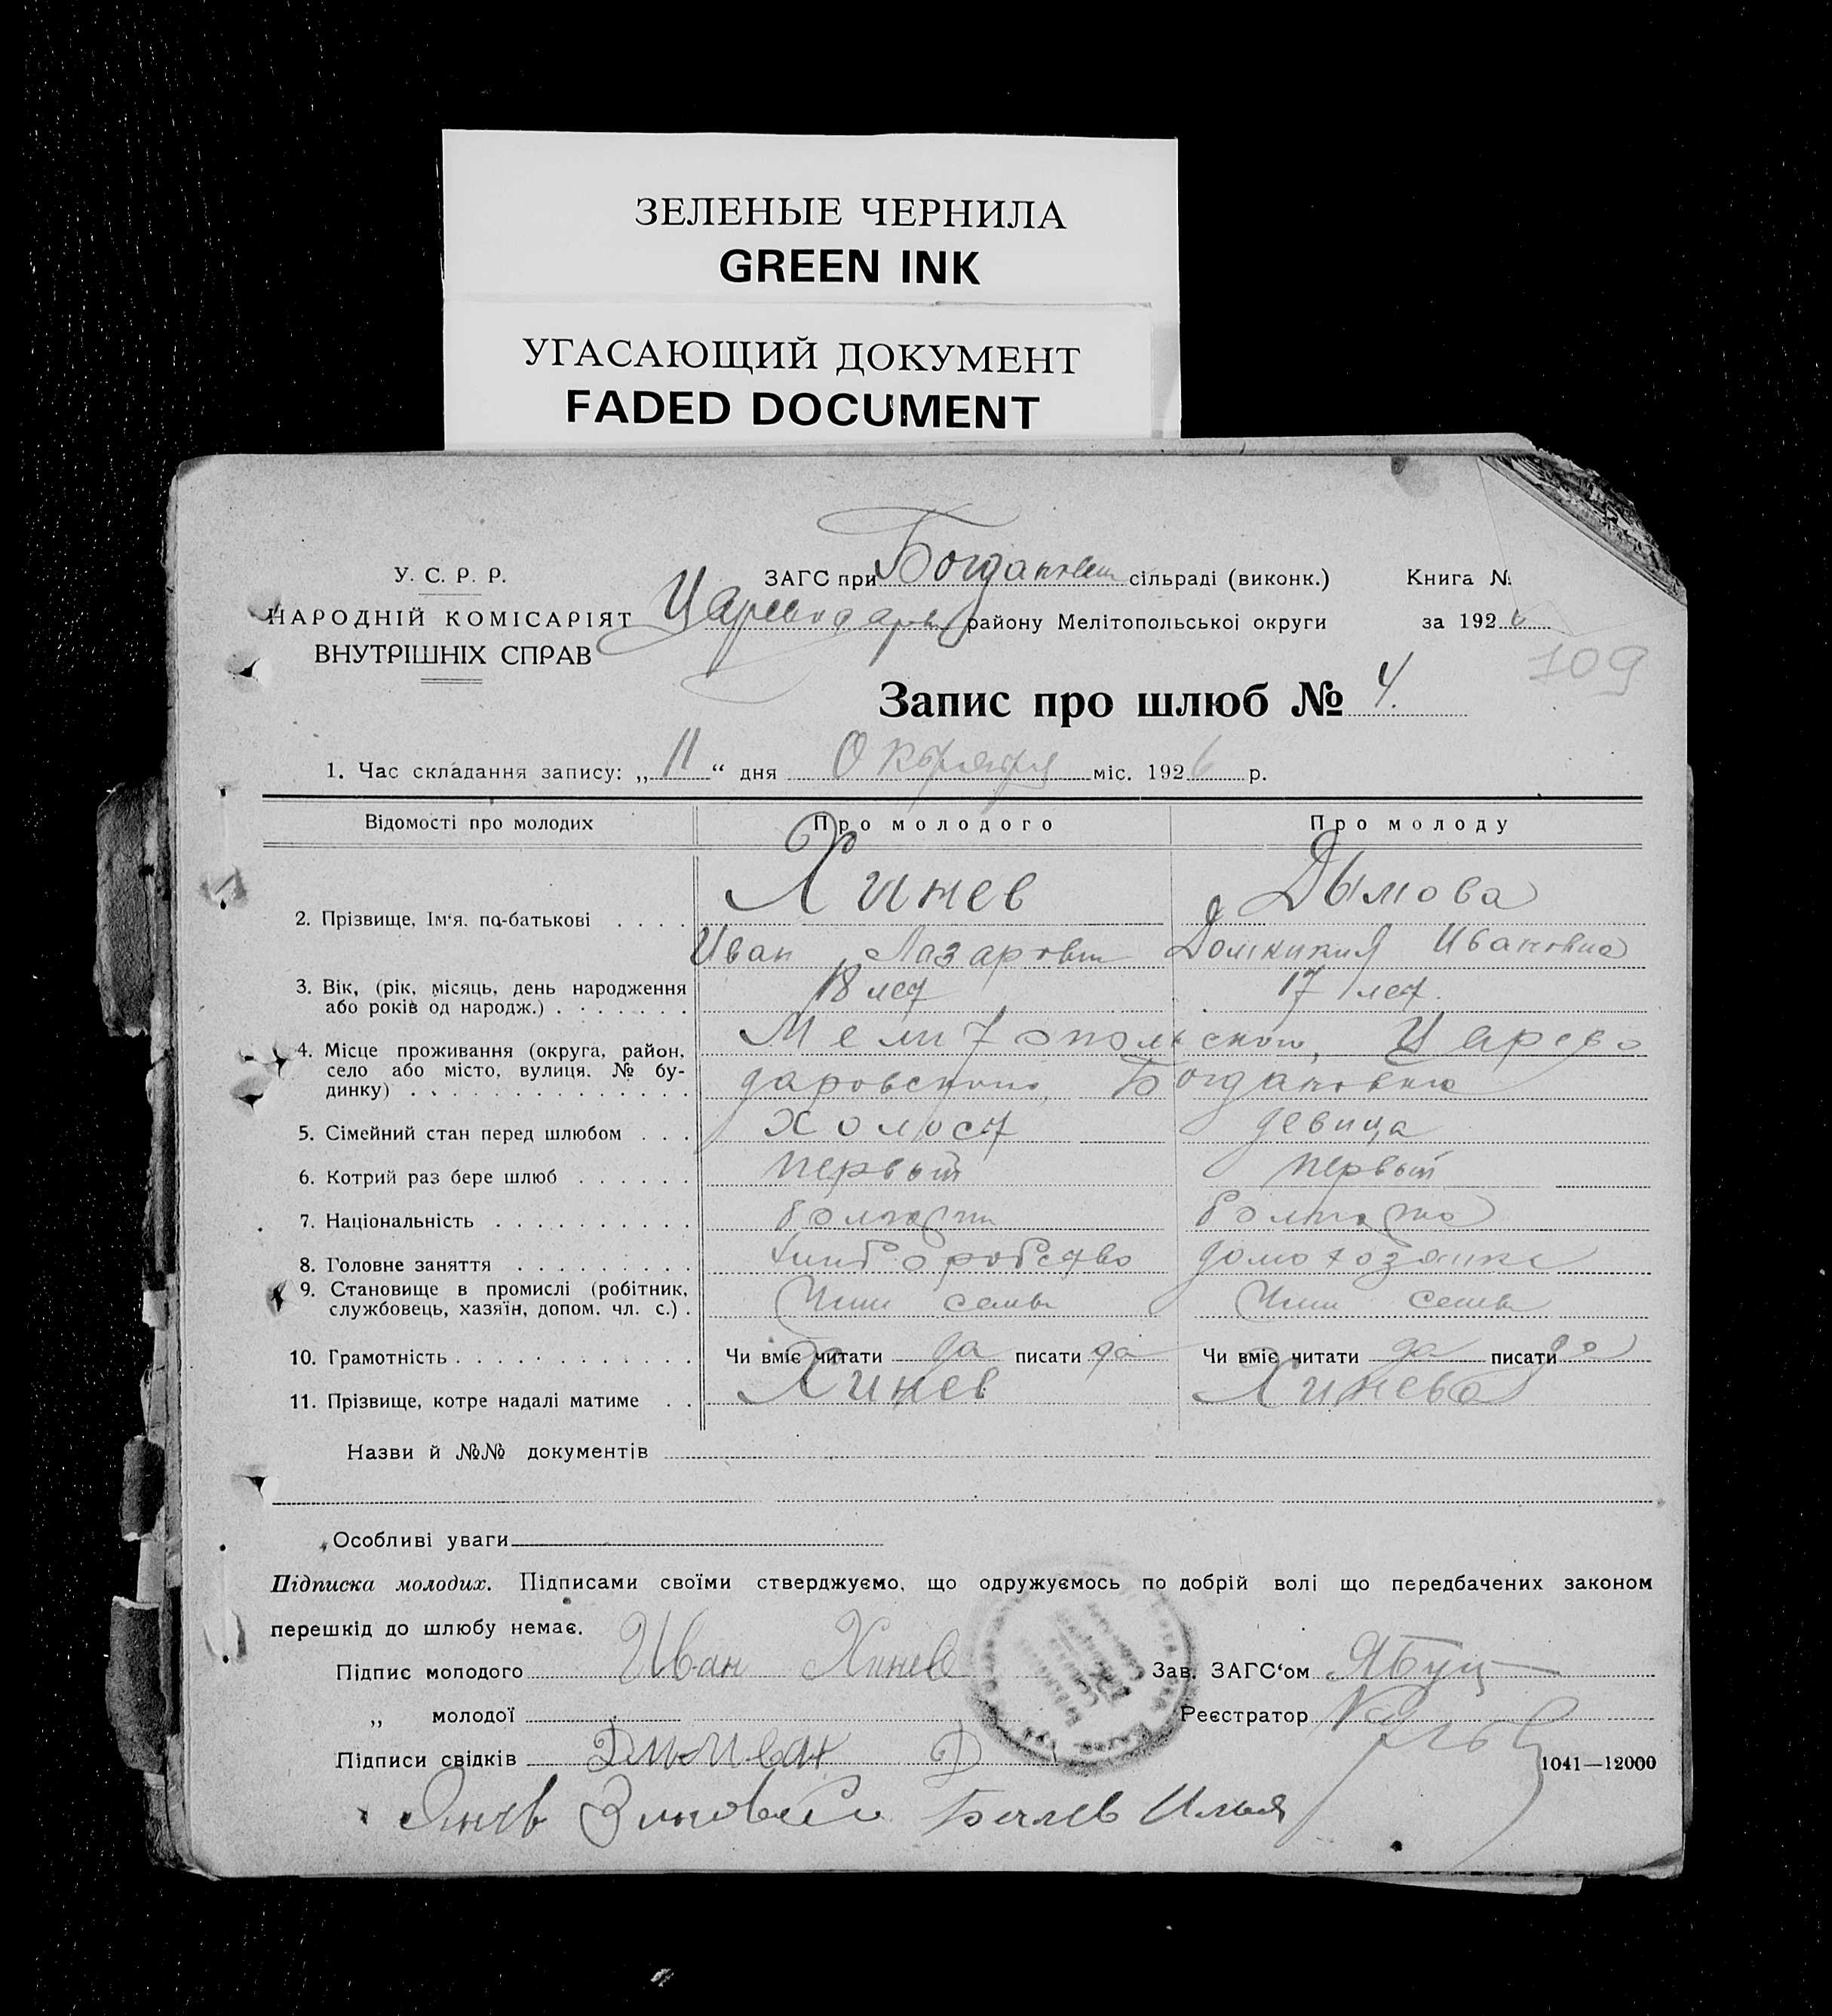 ЗЕЛЕНЫЕ ЧЕРНИЛА
GREEN INK
УГАСАЮЩИЙ ДОКУМЕНТ
FADED DOCUMENT
У. С. Р. Р.
НАРОДНІЙ КОМІСАРІЯТ
ВНУТРІШНІХ СПРАВ
ЗАГС при сільраді (виконк.)
району Мелітопольської округи
Книга №
за 1926
109
Запис про шлюб № 4.
1. Час складання запису: „11“ дня Октября міс. 1926 р.
Відомості про молодих Про молодого Про молоду
2. Прізвище, Ім‘я, по-батькові . . . . Хинев Дымова
Иван Ивановна
3. Вік, (рік, місяць, день народження 18 лет 17 лет.
або років од народж.) . . . . . . .
4. Місце проживання (округа, район, Мелитопольского, Царево
село або місто, вулиця. № бу- даровского,
динку) . . . . . . . . . . . . .
5. Сімейний стан перед шлюбом . . . Холост девица
6. Котрий раз бере шлюб . . . . . . первый первый
7. Національність . . . . . . . . . .
8. Головне заняття . . . . . . . . . хлиборобство
9. Становище в промислі (робітник, Член семьи Член семьи
службовець, хазяїн, допом. чл. с.) .
10. Грамотність . . . . . . . . . . . . Чи вміє читати да писати да Чи вміє читати да писати да
11. Прізвище, котре надалі матиме . . Хинев Хинева
Назви й №№ документів
Особливі уваги
Підписка молодих. Підписами своїми стверджуємо, що одружуємось по добрій волі що передбачених законом
перешкід до шлюбу немає.
Підпис молодого Иван Хинев Зав. ЗАГС‘ом
„ молодої Реєстратор
Підписи свідків Д 1041—12000
Илья